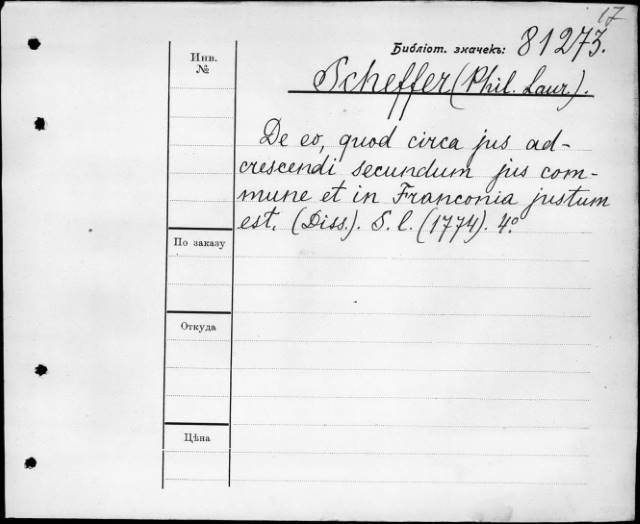 17
Библіот. значекъ: 81273.
Инв.
№
Scheffer (Phil. Laur.).
De eo, quod circa jus ad-
crescendi secundum jus com-
mune et in Franconia justum
est. (Diss.). S. l. (1774). 4°
По заказу
Откуда
Цѣна